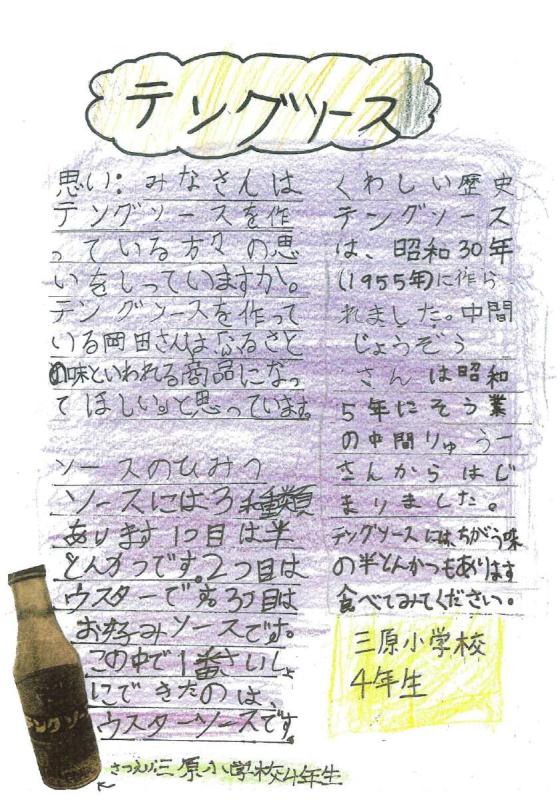 テングソース
思い:みなさんは
テングソースを作
っている方々の思
いをしっていますか。
テングソースを作って
いる岡田さんはふるさと
の味といわれる商品になっ
てほしい。と思っています。
ソースのひみつ
ソースには3種類
あります1つ目は半
とんかつです。2つ目は
ウスターです。3つ目は
お好みソースです。
この中で1番さいしょ
にできたのは、
ウスターソースです。
くわしい歴史
テングソース
は、昭和30年
(1955年)に作ら
れました。中間
じょうぞう
さんは昭和
5年にそう業
の中間りゅうー
さんからはじ
まりました。
テングソースには、ちがう味
の半とんかつもあります
食べてみてください。
三原小学校
4年生
テングソー
さつえい三原小学校4年生